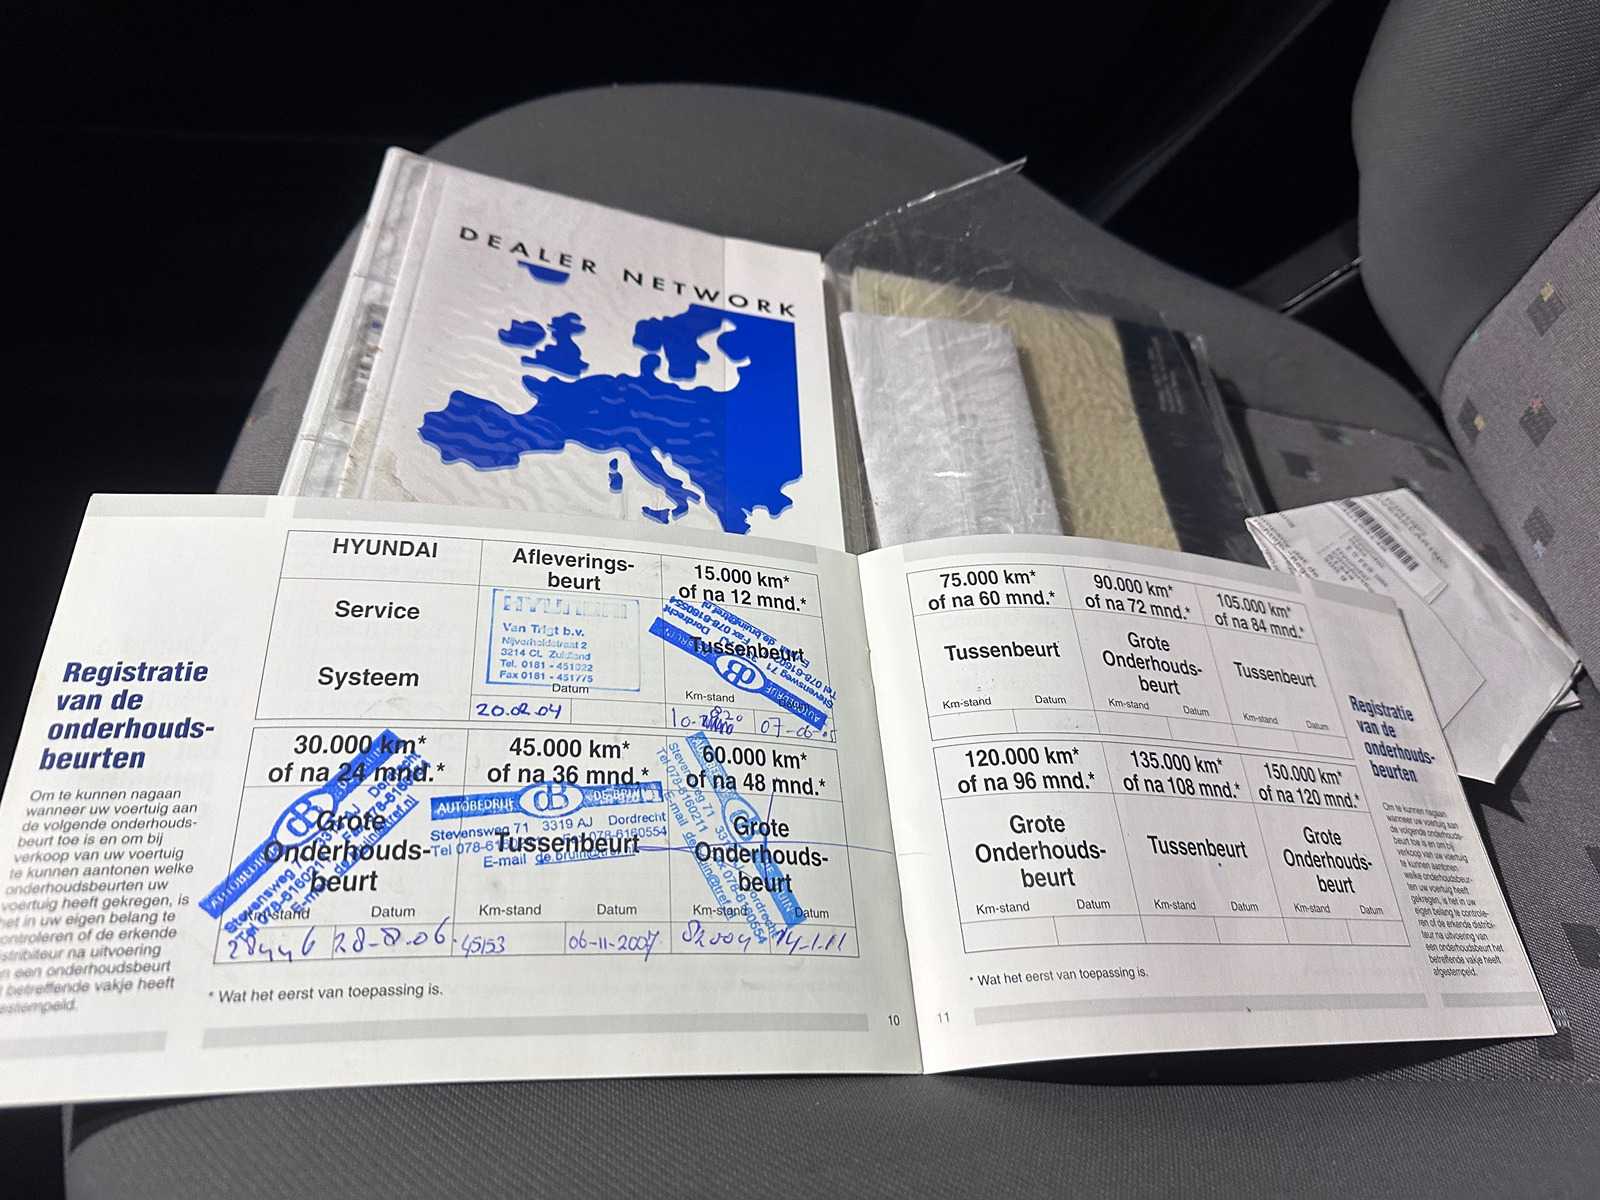 DEALER NETWORK
Registratie
van de
onderhouds-
beurten
Om te kunnen nagaan
wanneer uw voertuig aan
de volgende onderhouds-
beurt toe is en om bij
verkoop van uw voertuig
te kunnen aantonen welke
onderhoudsbeurten uw
voertuig heeft gekregen, is
het in uw eigen belang te
controleren of de erkende
distributeur na uitvoering
een onderhoudsbeurt
betreffende vakje heeft
HYUNDAI
Service
Systeem
Afleverings-
beurt
HYUNDAI
Van Trigt b.v.
Nijverheidstraat 2
3214 CL Zuidland
Tel. 0181 - 451022
Fax 0181 - 451775
Datum
20.02.04
15.000 km*
of na 12 mnd.*
Tussenbeurt
Km-stand
07-06-05
30.000 km*
of na 24 mnd.*
Grote
Onderhouds-
beurt
Km-stand Datum
28446 28-8.06
45.000 km*
of na 36 mnd.*
AUTOBEDRIJF dB DE BRUIN
Stevensweg 71 3319 AJ Dordrecht
Fax 078-6160554
E-mail
Tussenbeurt
Km-stand Datum
45153 06-11-2007
60.000 km*
of na 48 mnd.*
Grote
Onderhouds-
beurt
Km-stand Datum
82004 14-1.11
* Wat het eerst van toepassing is.
10
75.000 km*
of na 60 mnd.*
Tussenbeurt
Km-stand Datum
90.000 km*
of na 72 mnd.*
Grote
Onderhouds-
beurt
Km-stand Datum
105.000 km*
of na 84 mnd.*
Tussenbeurt
Km-stand Datum
120.000 km*
of na 96 mnd.*
Grote
Onderhouds-
beurt
Km-stand Datum
135.000 km*
of na 108 mnd.*
Tussenbeurt
Km-stand Datum
150.000 km*
of na 120 mnd.*
Grote
Onderhouds-
beurt
Km-stand Datum
* Wat het eerst van toepassing is.
11
Registratie
van de
onderhouds-
beurten
Om te kunnen nagaan
wanneer uw voertuig aan
de volgende onderhouds-
beurt toe is en om bij
verkoop van uw voertuig
te kunnen aantonen welke
onderhoudsbeurten uw
voertuig heeft
gekregen, is het in uw
eigen belang te controle-
ren of de erkende distribu-
teur na uitvoering van
een onderhoudsbeurt het
betreffende vakje heeft
afgestempeld.